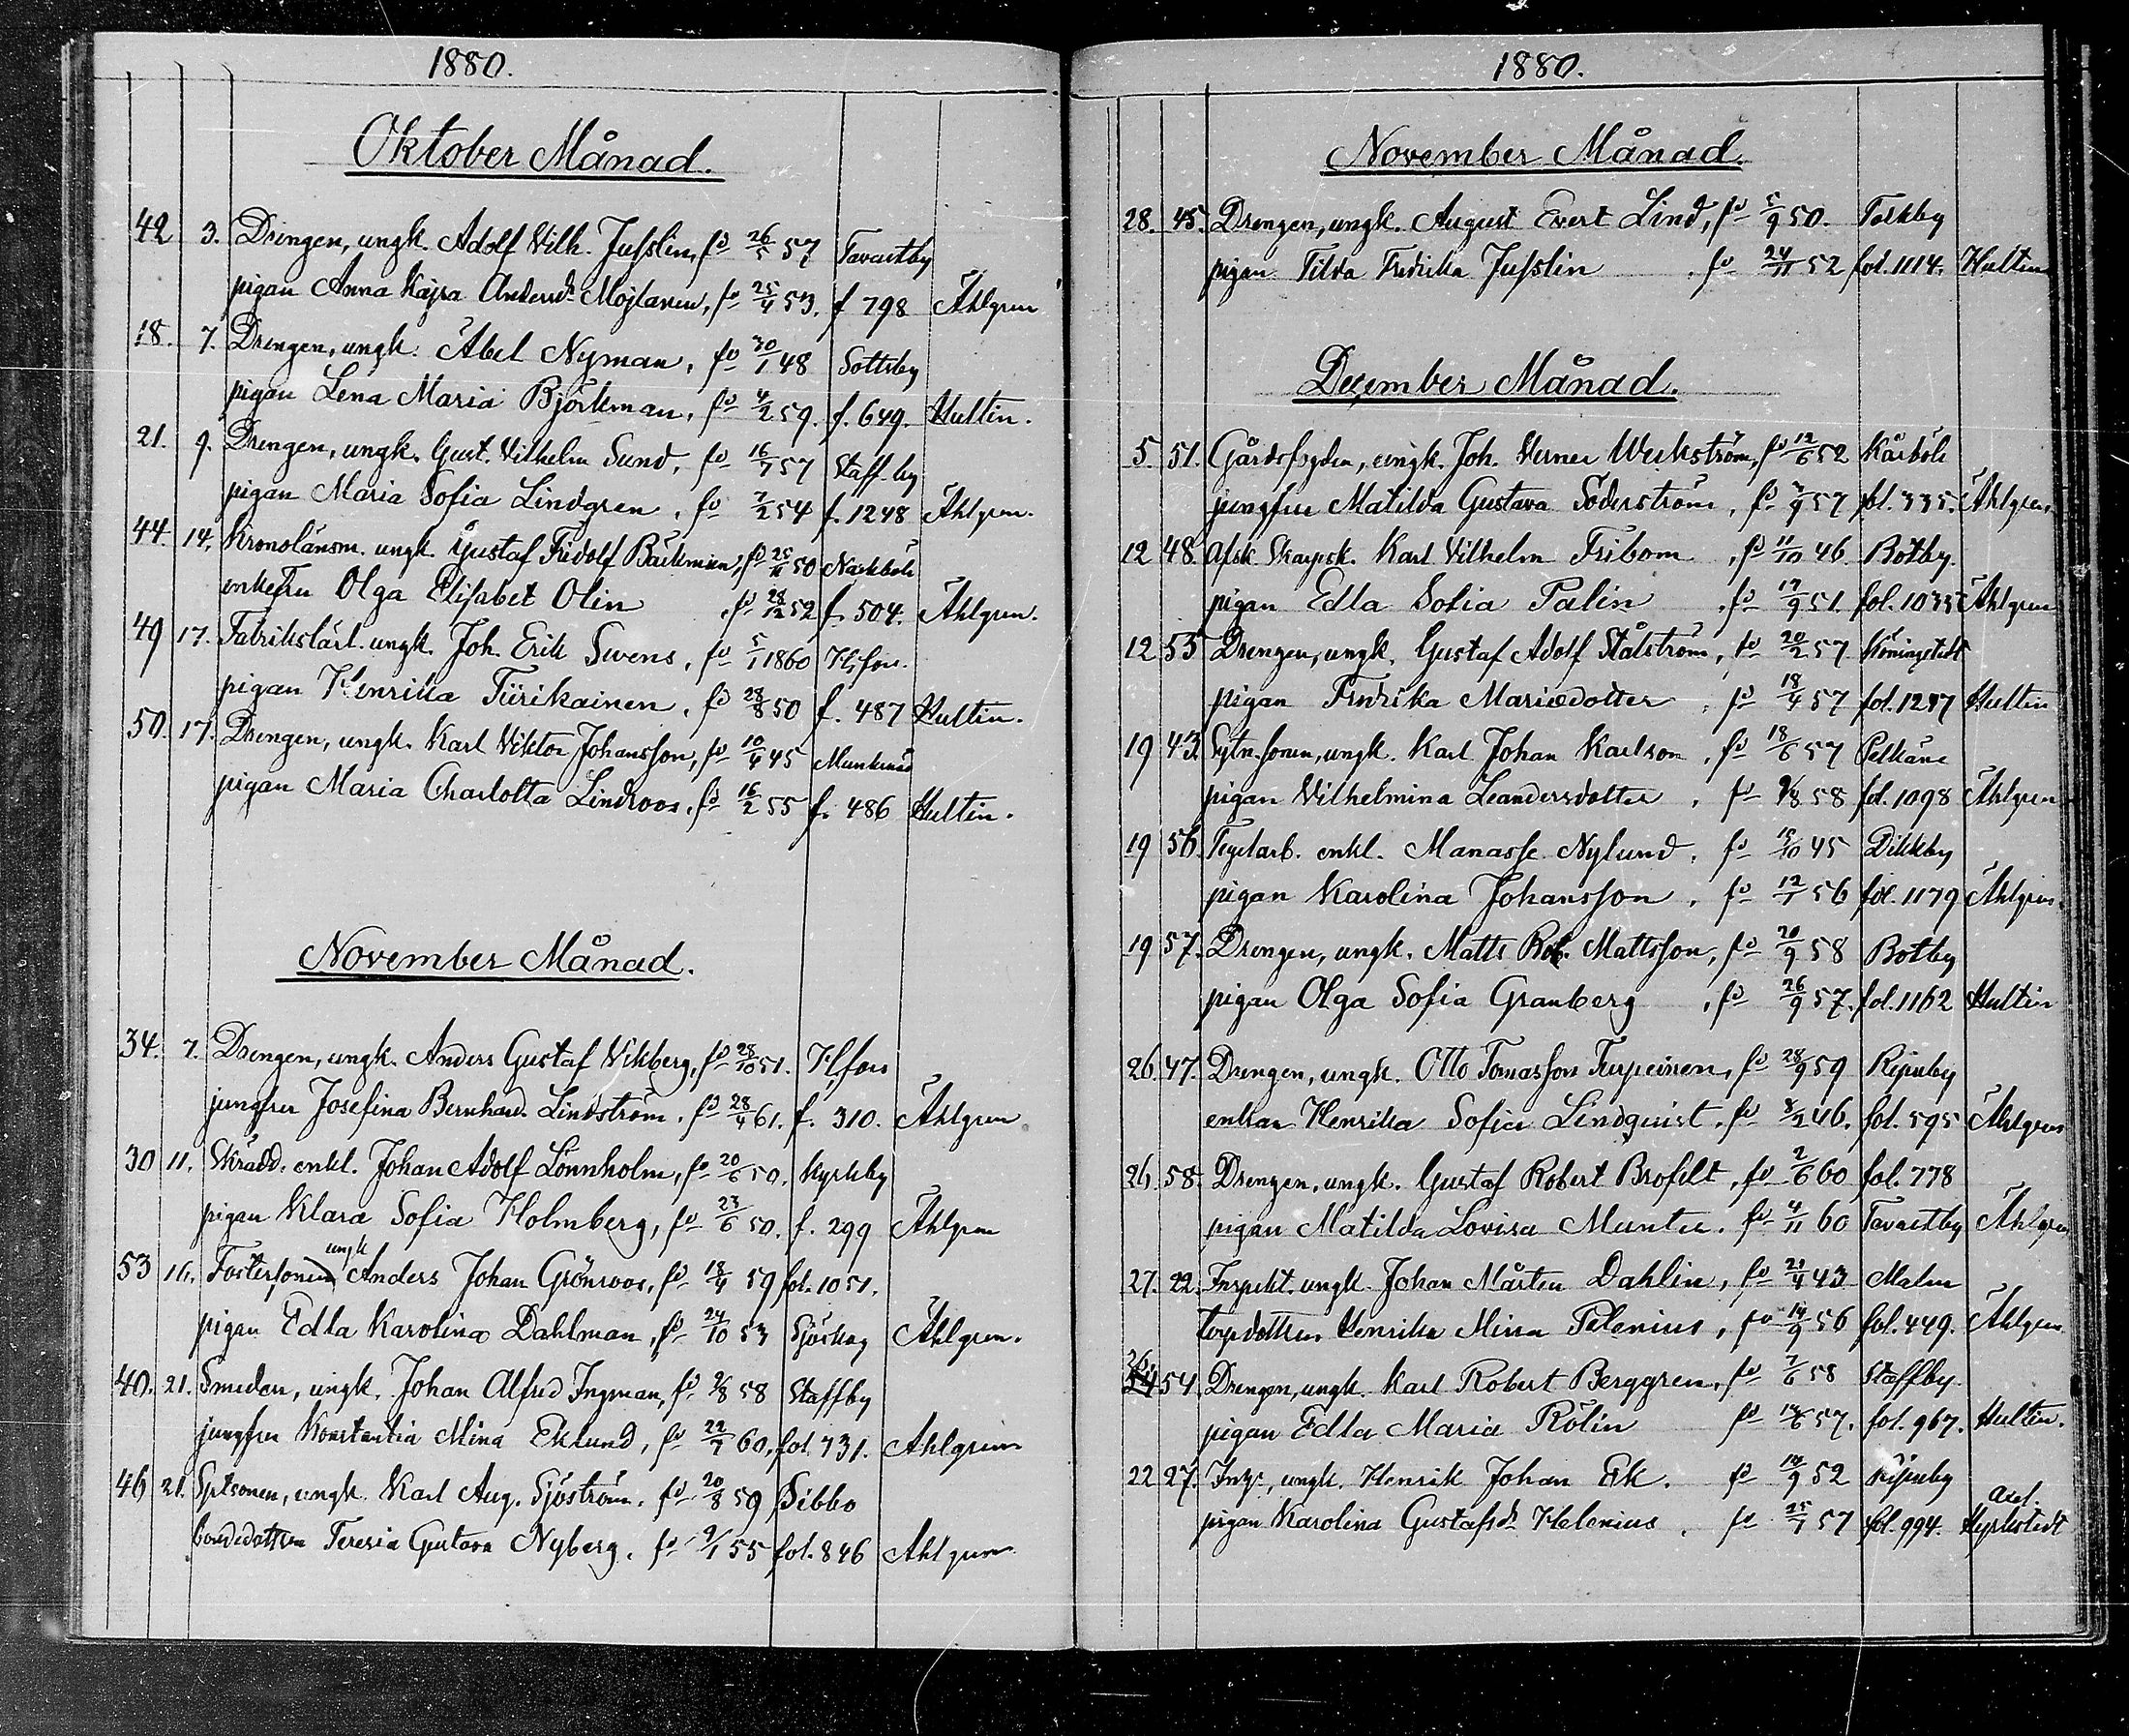 1880.
Oktober Månad.
42 3. Drengen, ungk. Adolf Vilh. Jusslin, fd 26/5 57 Tavastby
pigan Anna Kajsa Andersdr Mojlanen, fd 25/4 53. f 798 Åhlgren
18. 7. Drengen, ungk. Abel Nyman, fd 30/1 48 Sottsby
pigan Lena Maria Björkman, fd 4/2 59. f. 649. Hultin.
21. 9. Drengen, ungk. Gust. Vilhelm Sund, fd 16/7 57 Staff-by
pigan Maria Sofia Lindgren, fd 7/2 54 f. 1248 Åhlgren.
44. 14. Kronolänsm. ungk. Gustaf Fridolf Bäckman, fd 25/11 50 Nackböle
enkefru Olga Elisabet Olin fd 28/12 52 f. 504. Åhlgren.
49 17. Fabrikslärl. ungk. Joh. Erik Svens, fd 5/1 1860 H,fors.
pigan Henrika Tiirikainen, fd 28/8 50 f. 487 Hultin.
50. 17. Drengen, ungk. Karl Viktor Johansson, fd 10/4 45 Munknäs
pigan Maria Charlotta Lindroos, fd 16/2 55 f. 486 Hultin.
November Månad.
34. 7. Drengen, ungk. Anders Gustaf Vikberg, fd 28/10 51. H,fors
jungfru Josefina Bernhard. Lindström, fd 28/4 61. f. 310. Åhlgren
30 11. Skrädd. enkl. Johan Adolf Lönnholm, fd 20/6 50. Kyrkby
pigan Klara Sofia Holmberg, fd 23/6 50. f. 299 Åhlgren
ungk
53 16. Fostersonen Anders Johan Grönroos, fd 18/4 59 fol. 1051.
pigan Edla Karolina Dahlman, fd 24/10 53 Sjöskog Åhlgren.
40. 21. Smeden, ungk. Johan Alfred Ingman, fd 2/8 58 Staffby
jungfru Konstantia Mina Eklund, fd 22/7 60, fol. 731. Ahlgren
46 21. Sytsonen, ungk. Karl Aug. Sjöström, fd 20/8 59 Sibbo
bondedottren Teresia Gustava Nyberg, fd 9/1 55 fol. 846 Ahlgren
1880.
November Månad.
28. 45. Drengen, ungk. August Evert Lind, fd 5/9 50. Toskby
pigan Tilda Fredrika Jusslin, fd 24/11 52 fol. 1114. Hultin
December Månad.
5. 51. Gårdsfogden, ungk. Joh. Verner Weckström, fd 12/6 52 Kårböle
jungfru Matilda Gustava Söderström, fd 3/9 57 fol. 335. Åhlgren,
12 48. Afsk. Skarpsk. Karl Vilhelm Fribom, fd 11/10 46. Botby.
pigan Edla Sofia Palin, fd 17/9 51. fol. 1035 Åhlgren
12 55 Drengen, ungk. Gustaf Adolf Stålström, fd 20/2 57. Köningstedt
pigan Fredrika Mariædotter, fd 18/4 57 fol. 1287 Hultin
19 43. Sytn.sonen, ungk. Karl Johan Karlson, fd 18/6 57 Pelkäne
pigan Vilhelmina Leandersdotter, fd 9/8 58 fol. 1098 Åhlgren
19 56. Tegelarb. enkl. Manasse Nylund, fd 15/10 45 Dikkby
pigan Karolina Johansson, fd 12/1 56 fol. 1179 Åhlgren.
19 57. Drengen, ungk. Matts Rob. Mattsson, fd 20/9 58 Botby
pigan Olga Sofia Granberg, fd 26/9 57. fol. 1162 Hultin
26. 47. Drengen, ungk. Otto Tomasson Turpeinen, fd 28/9 59 Ripuby
enkan Henrika Sofia Lindqvist, fd 8/2 46. fol. 595 Åhlgren
26. 58. Drengen, ungk. Gustaf Robert Brofelt, fd 2/6 60 fol. 778
pigan Matilda Lovisa Munter. fd 4/11 60 Tavastby Åhlgren
27. 22. Inspekt. ungk. Johan Mårten Dahlin, fd 21/4 43 Malm
torpdottren Henrika Mina Pelenius, fd 19/9 56 fol. 449. Åhlgren.
26 54 Drengen, ungk. Karl Robert Berggren, fd 7/6 58 Staffby.
pigan Edla Maria Rölin fd 14/6 57. fol. 967. Hultin.
22 27. Insp., ungk. Henrik Johan Ek. fd 14/9 52 Ripuby
pigan Karolina Gustafsdr Helenius, fd 25/7 57 fol. 994. Axel. Kyrkstedt